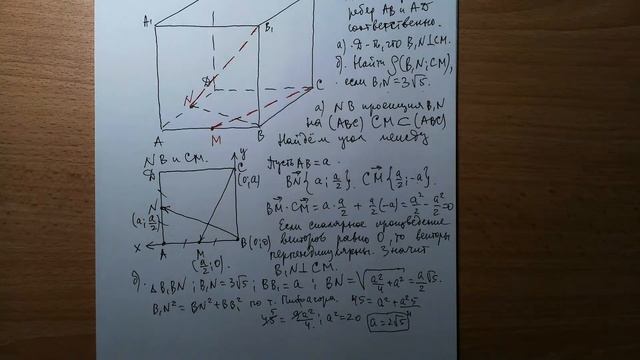 рёбер AB и AD
соответственно.
а) Д-ть, что B₁N⊥CM.
б) Найти ρ(B₁N; CM),
если B₁N = 3√5.
A₁
B₁
D
C
N
A
M
B
а) NB проекция B₁N
на (ABC) CM ⊂ (ABC)
Найдём угол между
NB и CM.
Пусть AB = a.
BN {a; a/2}. CM {a/2; -a}.
BM · CM = a · a/2 + a/2 (-a) = a²/2 - a²/2 = 0
Если скалярное произведение
векторов равно 0, то векторы
перпендикулярны. Значит
B₁N ⊥ CM.
y
D
C
(0; a)
N
(a; a/2)
x
A
M
B(0; 0)
(a/2; 0).
б) Δ B₁BN; B₁N = 3√5; BB₁ = a; BN = √(a²/4 + a²) = a/2 √5.
B₁N² = BN² + BB₁² по т. Пифагора.
a² = 20
a = 2√5